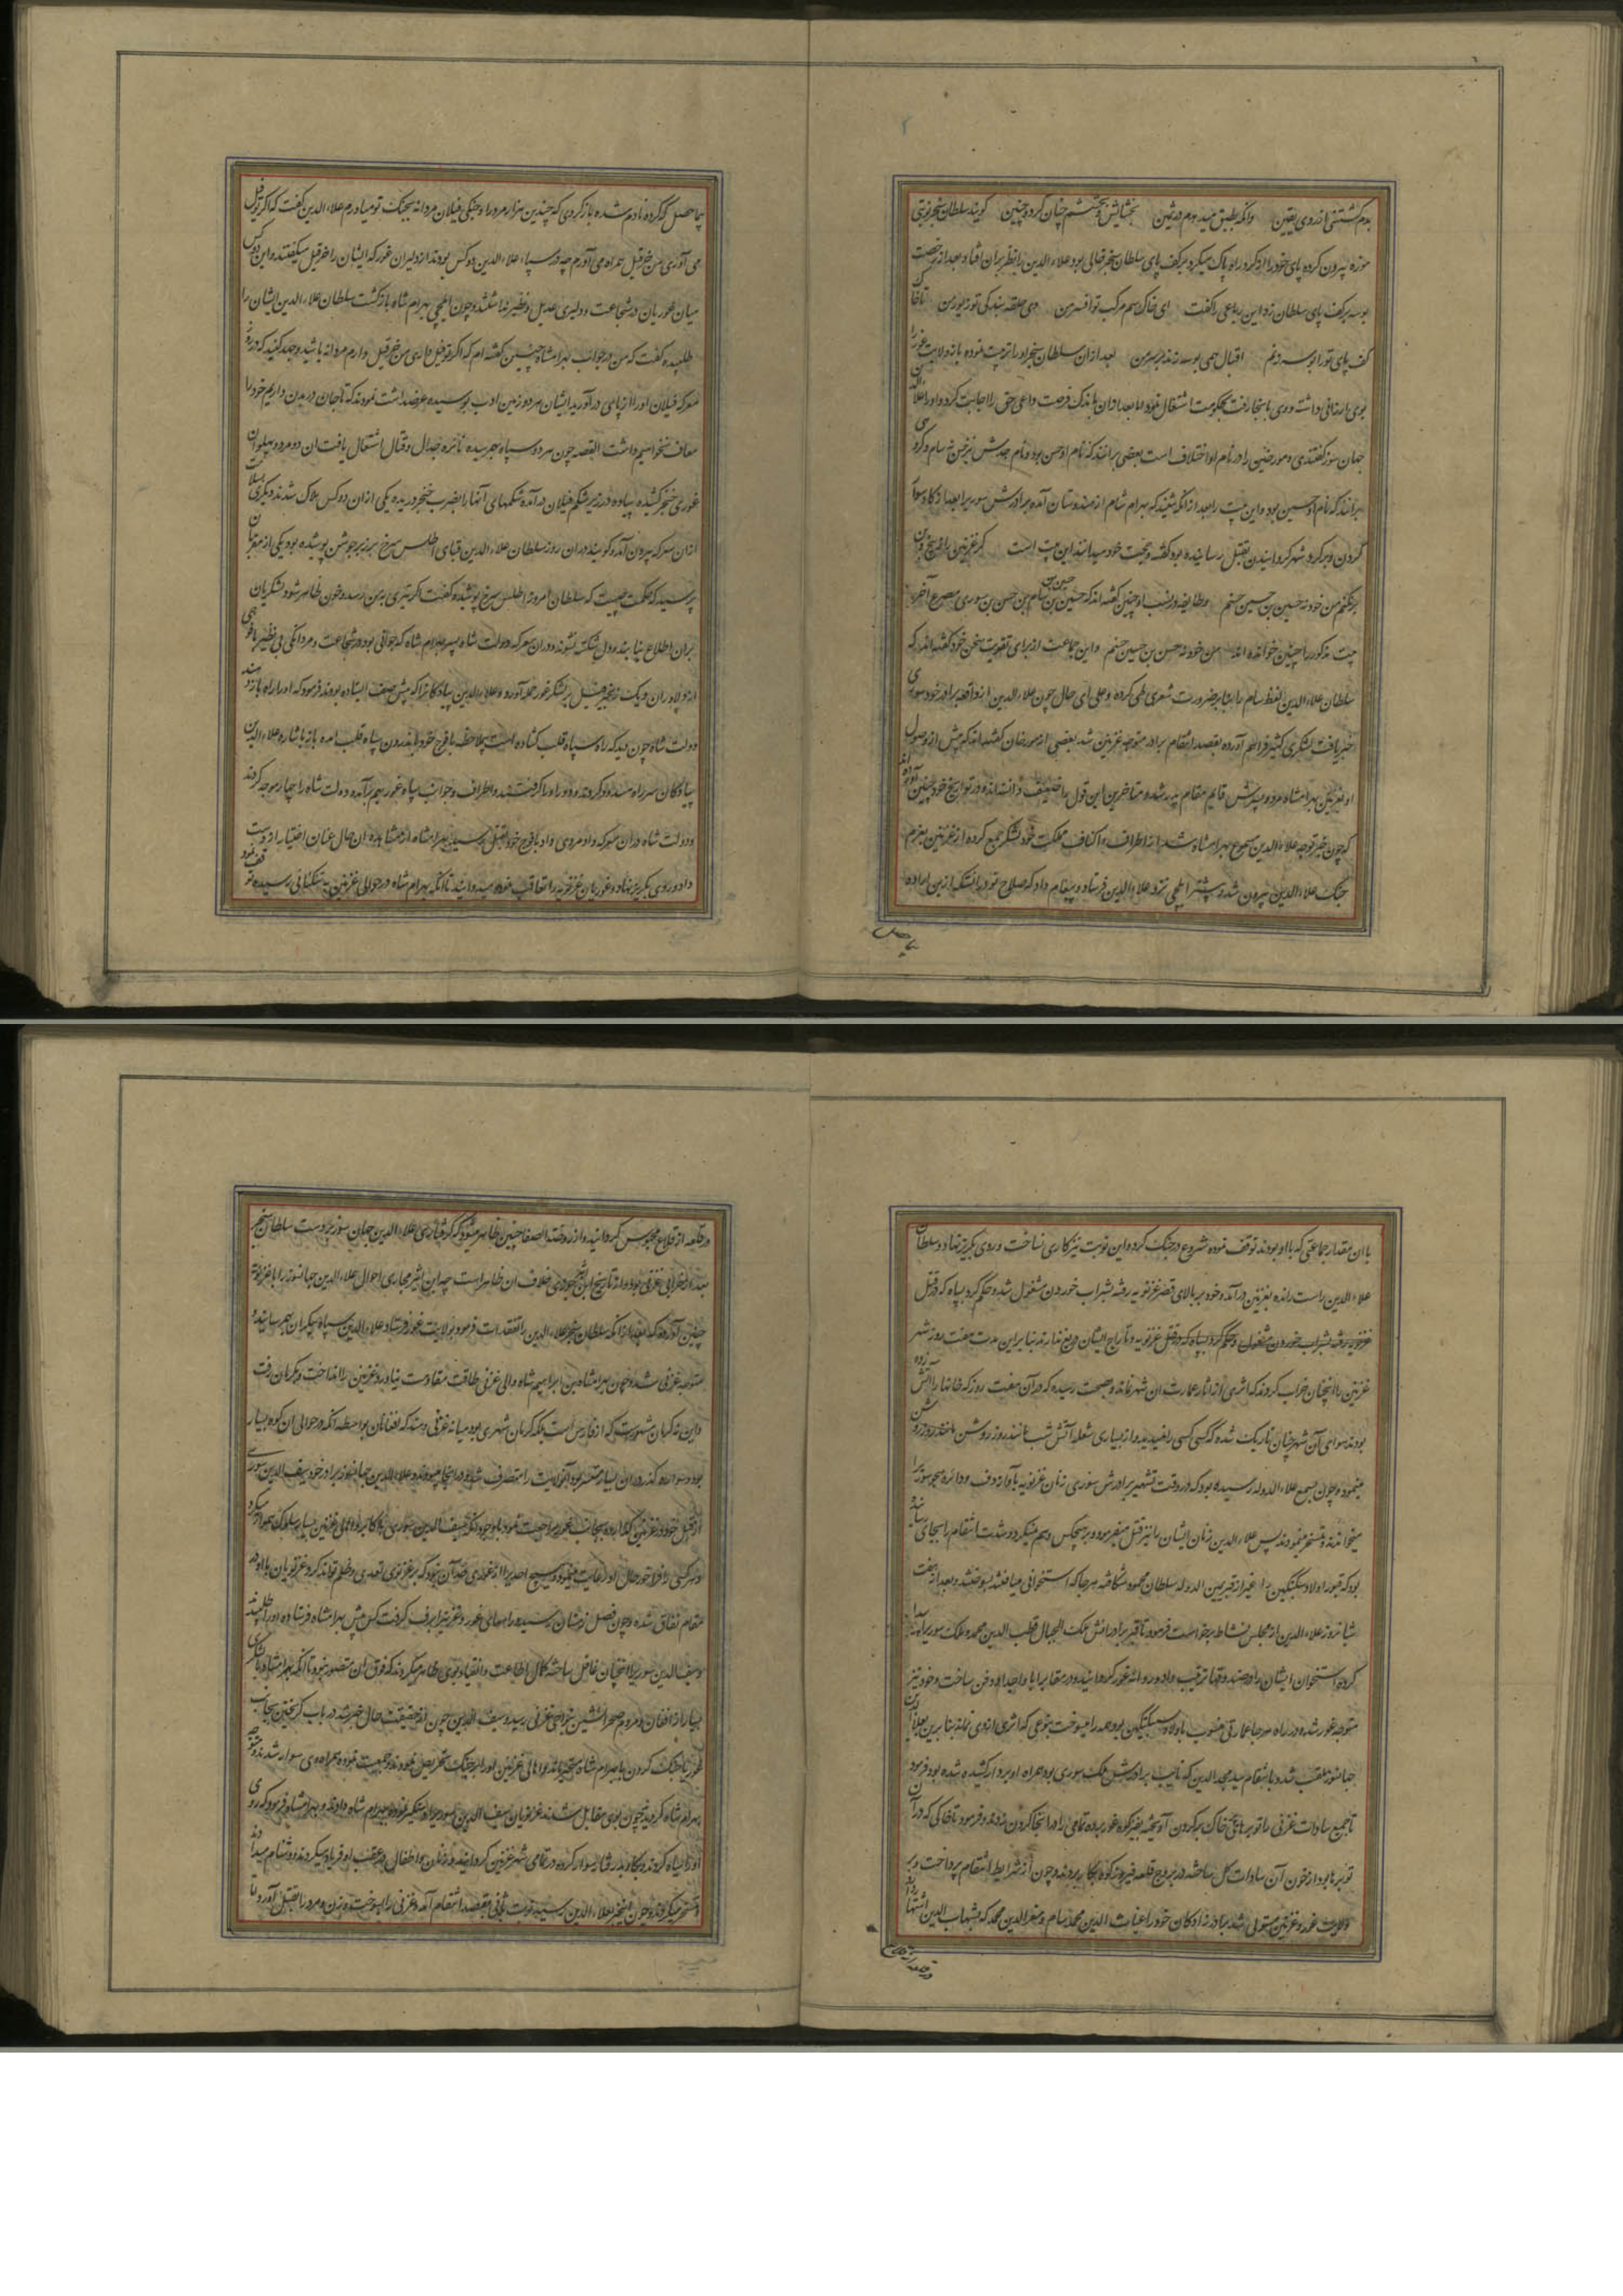 بدم گشتنی از روی یقین وانگه بطبق میدهدم در ثمین بخشایش و بخششم چنان کرد و چنین گویند سلطان سنجر نوبتی
موزه بیرون کرده پای خود را از گرد راه پاک میکرد بر کف پای سلطان سنجر خالی بود علاء الدین را نظر بران افتاد بعد از رخصت
بوسه بر کف پای سلطان زد و این رباعی را گفت ای خاک سم مرکب تو افسر من وی حلقه بندگی تو زیور من تا خا
کف پای تو را بوسه زدم اقبال همی بوسه زند بر سر من بعد ازان سلطان سنجر او را تربیت نموده باز ولایت غور را
بوی ارزانی داشته و وی بانجا رفت بحکومت اشتغال نمود اما بعد ازان باندک فرصت داعی حق را اجابت کرد و او را علاء الدین
جهان سوز گفتندی و مورخین را در نام او اختلاف است بعضی برانند که نام او حسن بود و نام جدش نیز حسن سام و گروهی
برانند که نام او حسین بود و این بیت را بعد از آنکه شنید که بهرام شاه از هندوستان آمده برادرش سوری را بعد از گاو سوار
کردن و بر گرد شهر گردانیدن بقتل رسانیده بود گفته و بحجت خود میدانند این بیت است گر غزنین را ز بیخ و بن
برنکنم من خود نه حسین بن حسین حسنم و طایفه در نسب او چنین گفته اند که حسین بن سام بن حسن بن سوری و مصرع آخر
بیت مذکور را چنین خوانده اند من خود نه حسن بن حسین حسنم و این جماعت از برای تقویت سخن خود گفته اند که
سلطان علاء الدین لفظ سام را بنابر ضرورت شعری طی کرده و علی ای حال چون علاء الدین از واقعه برادر خود سوری
خبر یافت لشکری کثیر فراهم آورده بقصد انتقام برادر متوجه غزنین شد بعضی از مورخان گفته اند که پیش از وصول
او بغزنین بهرامشاه مرد و پسرش قایم مقام پدر شد و متاخرین این قول را ضعیف دانسته اند و در تواریخ خود چنین آورده اند
که چون خبر توجه علاء الدین مسموع بهرامشاه شد از اطراف و اکناف مملکت خود لشکر جمع کرده از غزنین بعزم
جنگ علاء الدین بیرون شد و پیشتر ایلچی نزد علاء الدین فرستاد و پیغام داد که صلاح تو در آنست که ازین اراده
بیحاصل
بیحاصل که کرده نادم شده باز گردی که چندین هزار مرد و جنگی فیلان مردانه بجنگ تو میاورم علاء الدین گفت که اگر تو فیل
می آوری من خرفیل همراه می آورم چه در سپاه علاء الدین دو کس بودند از دلیران غور که ایشان را خرفیل میگفتند و این دو کس
میان غوریان در شجاعت و دلیری عدیل و نظیر نداشتند و چون ایلچی بهرام شاه بازگشت سلطان علاء الدین ایشان را
طلبیده گفت که من در جواب بهرامشاه چنین گفته ام که اگر تو فیل داری من خرفیل دارم مردانه باشید و جهد کنید که در روز
معرکه فیلان او را از پای در آورید ایشان هر دو زمین ادب بوسیده عرضداشت نمودند که تا جان در بدن داریم خود را
معاف نخواهیم داشت القصه چون هر دو سپاه بهم رسیده نائره جدال و قتال اشتعال یافت ان دو مرد پهلوان
غوری خنجر کشیده پیاده در زیر شکم فیلان در آمده شکمهای آنها را بضرب خنجر دریده یکی ازان دو کس هلاک شد و دیگری بسلامت
ازان معرکه بیرون آمد و گویند دران روز سلطان علاء الدین قبای اطلس سرخ بر زبر جوشن پوشیده بود یکی از مقربان
پرسید که حکمت چیست که سلطان امروز اطلس سرخ پوشیده گفت اگر تیری به من رسد و خون ظاهر شود لشکریان
بران اطلاع نیابند و دل شکسته نشوند و دران معرکه دولت شاه پسر بهرام شاه که جوانی بود در شجاعت و مردانگی بی نظیر با فوجی
از دلاوران و یک زنجیر فیل بر لشکر غور حمله آورد و علاء الدین پیادگان را که پیش صف ایستاده بودند فرمود که او را راه بازدهند
دولت شاه چون دید که راه سپاه قلب گشاده است بیملاحظه با فوج خود باندرون سپاه قلب آمده باز باشاره علاء الدین
پیادگان سر راه مسدود کردند و دور او را گرفتند و اطراف و جوانب سپاه غور بهم بر آمده دولت شاه را چهار موجه کردند
و دولت شاه دران معرکه داد مردی داد با فوج خود بقتل رسید بهرامشاه از مشاهده ان حال عنان اختیار از دست
داد و روی بگریز نهاد و غوریان غزنویه را تعاقب نموده میدوانیدند تا آنکه بهرام شاه در حوالی غزنین به تنگنائی رسیده توقف نمود
با ان مقدار جماعتی که با او بودند توقف نموده شروع در جنگ کرد و این نوبت نیز کاری نساخت و روی بگریز نهاد و سلطان
علاء الدین راست رانده بغزنین در آمد و خود بر بالای قصر غزنویه رفته بشراب خوردن مشغول شده حکم کرد بسپاه که در قتل
غزنویه رفته بشراب خوردن مشغول و حکم کرد بسپاه که در قتل غزنویه و تاراج ایشان دریغ ندارند بنابر این مدت هفت روز شهر
غزنین را انچنان خراب کردند که اثری از اثار عمارت ان شهر نماند و بصحت رسیده که در آن هفت روز که خانها را آتش زده
بودند هوای آن شهر چنان تاریک شده که کسی کسی را نمیدید و از بسیاری شعله آتش شب مانند روز روشن
مینمود و چون بسمع علاء الدوله رسیده بود که در وقت تشهیر برادرش سوری زنان غزنویه باواز دف و دائره هجو سوری را
میخواندند و تمسخر مینمودند پس علاء الدین زنان ایشان را نیز قتل میفرمود و بر هیچکس رحم نمیکرد و شدت انتقام را بجای رسانید
بود که قبور اولاد سبکتکین را غیر از قبر یمین الدوله سلطان محمود شکافته هر جا که استخوانی میافتند میسوختند و بعد از هفت
شبانروز علاء الدین از مجلس نشاط برخواست فرمود تا قبر برادرانش ملک الجبال قطب الدین محمد و ملک سوری را پیدا
کرده استخوان ایشان را در صندوقها ترتیب داده روانه غور گردانید و در مقابر ابا و اجداد دفن ساخت و خود نیز
متوجه غور شده در راه هر جا عمارتی منسوب باولاد سبکتکین بود همه را میسوخت بنوعی که اثری ازوی نماند بنابرین بعلاء الدین
جهانسوز ملقب شد و بانتقام سید مجد الدین که نایب برادرش ملک سوری بود همراه او بر دار کشیده شده بود فرمود
تا جمیع سادات غزنی را توبرهای خاک بر گردن آویخته بفیروزکوه غور برده تمامی را در انجا گردن زدند و فرمود تا خاکی که در آن
توبرها بود از خون آن سادات گل ساخته در بروج قلعه فیروزکوه بکار بردند و چون از شرایط انتقام پرداخت و بر
ولایت غور و غزنین مستولی شد برادرزادگان خود را غیاث الدین محمد سام و معز الدین محمد که بشهاب الدین اشتهار دارد
در قلعه
در قلعه از قلاع محبوس گردانید و از روضة الصفا چنین ظاهر میشود که گرفتاری علاء الدین جهان سوز بدست سلطان سنجر
بعد از خرابی غزنی بود و از تاریخ ابن اثیر جزری خلاف ان ظاهر است چه ابن اثیر مجاری احوال علاء الدین جهانسوز را با غزنویه
چنین آورده که بعد از آنکه سلطان سنجر علاء الدین را تفقدات فرمود بولایت غور فرستاد علاء الدین سپاه بیکران بهم رسانیده
متوجه غزنی شد و چون بهرامشاه بن ابراهیم شاه والی غزنی طاقت مقاومت نیاورد غزنین را انداخت و بکرمان رفت
و این نه کرمان مشهورست که از فارس است بلکه کرمان شهری بود میانه غزنی و هند که افغانان بواسطه آنکه در حوالی ان کوه بسیار
بود و سواره گذر دران بسیار متعسر بود آنولایت را متصرف شده در انجا میبودند و علاء الدین جهانسوز برادر خود سیف الدین سوری
از قبل خود در غزنین گذارده بجانب غور مراجعت نمود
و هر کس را فراخور حال او رعایت مینمود و هیچ احدی را از غوری حد آن نبود که بر غزنوی تعدی و ظلم تواند کرد غزنویان با او در
مقام نفاق شده و چون فصل زمستان رسید و راههای غور و غزنین را برف گرفت کس پیش بهرامشاه فرستاده او را طلبیدند
و سیف الدین سوری را آنچنان غافل ساخته کمال اطاعت و انقیاد بوی ظاهر میکردند که فوق ان متصور نبود تا آنکه بهرامشاه با لشکری
بسیار از افغان و مردم صحرانشین بنواحی غزنی رسید و سیف الدین چون از حقیقت حال خبر شد در باب گریختن بجانب
غور یا جنگ کردن با بهرام شاه متحیر ماند و اهالی غزنین او را بر جنگ تحریص نمودند و جمعیت نموده همراه وی سوار شدند و متوجه
بهرام شاه گردیدند چون بوی مقابل شدند غزنویان سیف الدین سوری را دستگیر نموده ببهرام شاه دادند و بهرامشاه فرمود که روی
او را سیاه کردند و بگاو سوار کرده در تمامی شهر غزنین گردانیدند و زنان و اطفال در عقب او فریاد میکردند و دشنام میدادند
و تمسخر میکردند و چون اینخبر بعلاء الدین رسید نوبت ثانی بقصد انتقام آمد و غزنی را بسوخت و زن و مرد را بقتل آورد تا